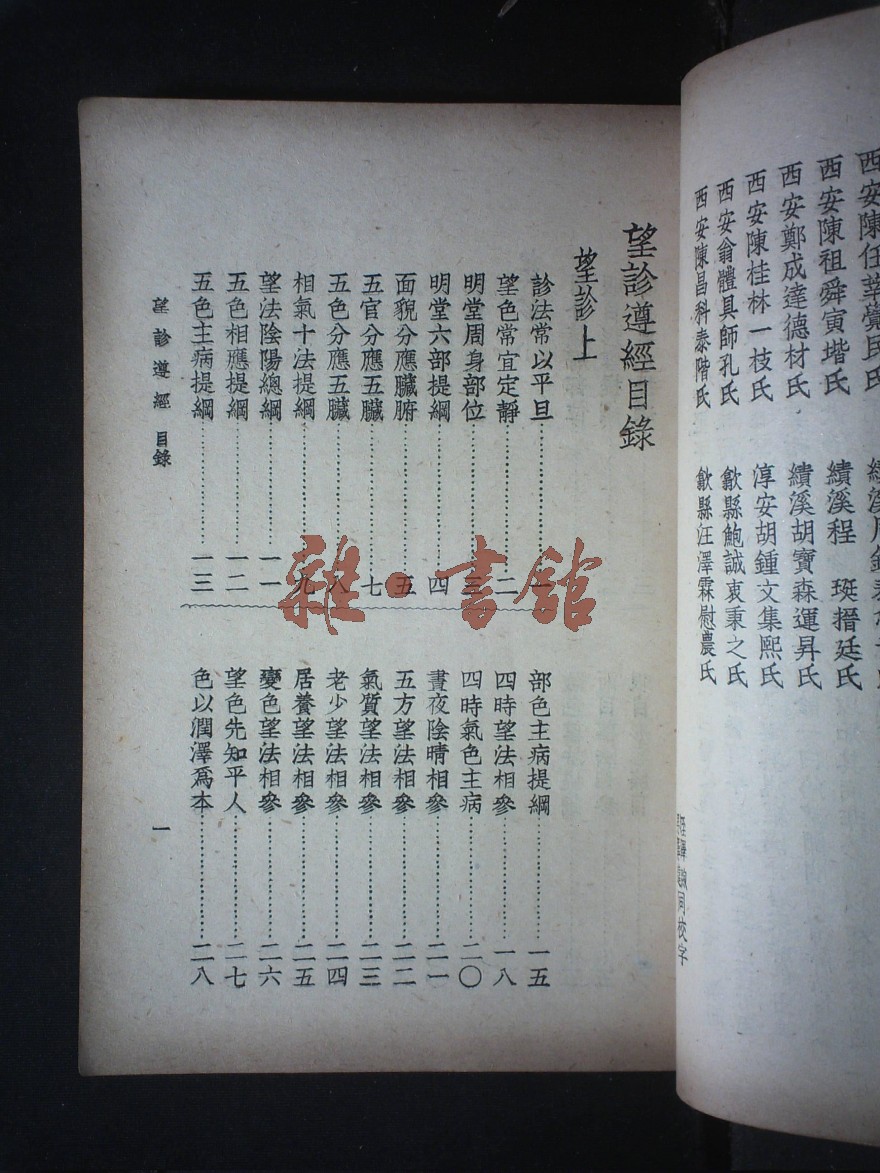 西安陳祖舜寅堦氏
西安鄭成達德材氏
西安陳桂林一枝氏
西安翁體具師孔氏
西安陳昌科泰階氏
績溪程　珽搢廷氏
績溪胡寶森運昇氏
淳安胡鍾文集熙氏
歙縣鮑誠衷秉之氏
歙縣汪澤霖慰農氏
同校字
望診遵經目錄
望診上
診法常以平旦………一
望色常宜定靜………二
明堂周身部位………三
明堂六部提綱………四
面貌分應臟腑………五
五官分應五臟………七
五色分應五臟………八
相氣十法提綱………九
望法陰陽總綱………一一
五色相應提綱………一二
五色主病提綱………一三
部色主病提綱………一五
四時望法相參………一八
四時氣色主病………二〇
晝夜陰晴相參………二一
五方望法相參………二二
氣質望法相參………二三
老少望法相參………二四
居養望法相參………二五
變色望法相參………二六
望色先知平人………二七
色以潤澤爲本………二八
望診遵經　目錄
一
雜·書館